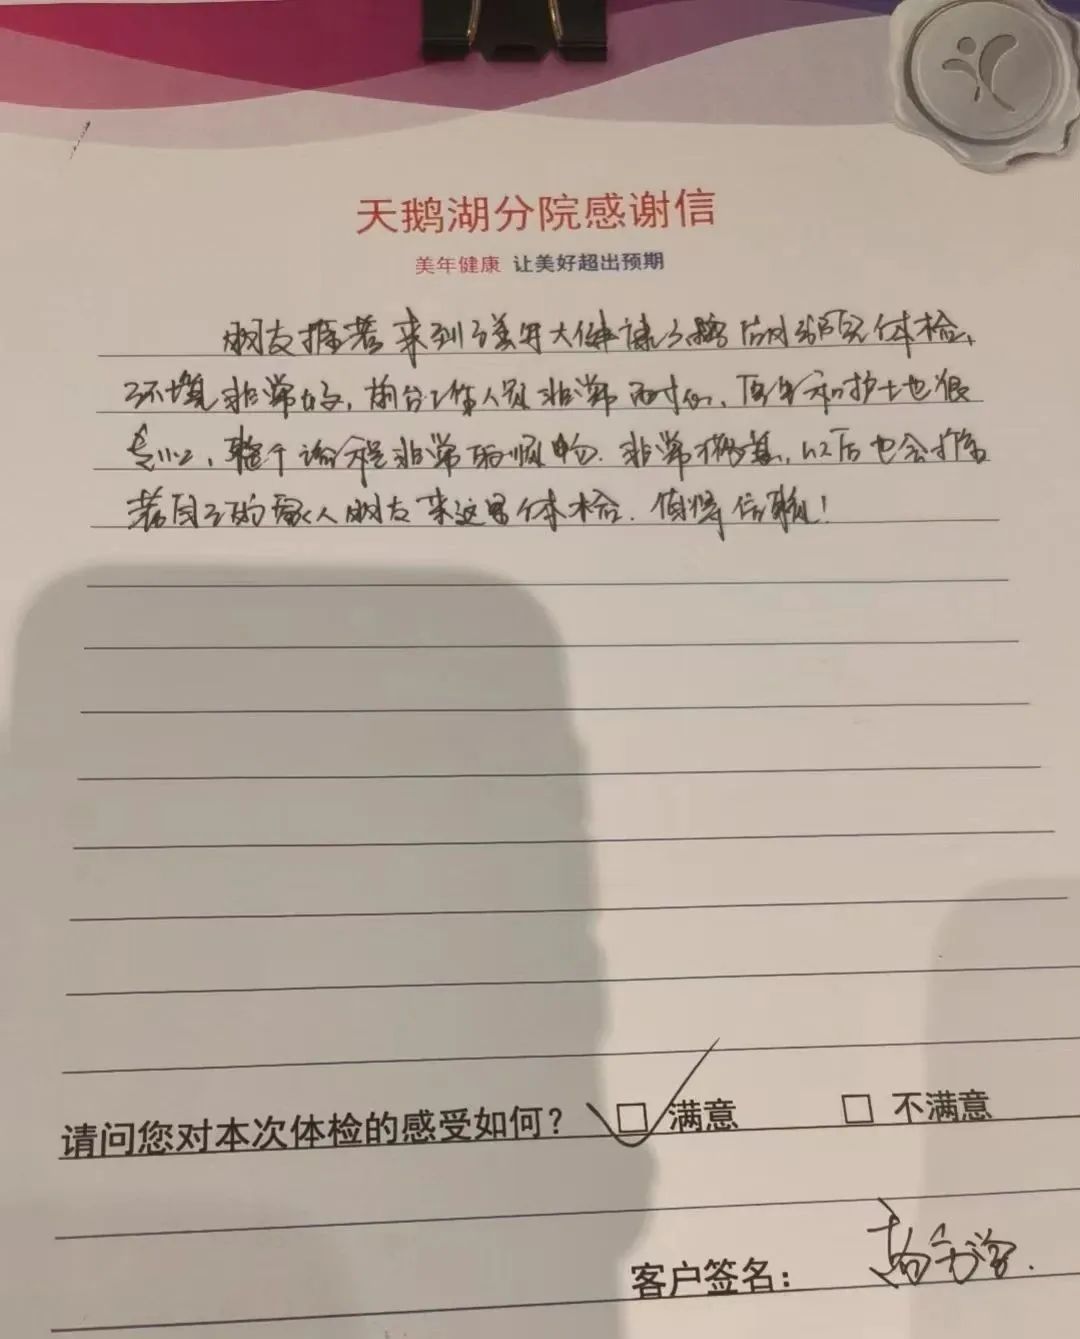 天鹅湖分院感谢信
美年健康 让美好超出预期
朋友推荐来到了美年大健康天鹅湖分院体检,
环境非常好,前台工作人员非常耐心,医生和护士也很
专业,整个流程非常的顺畅.非常推荐,以后也会推
荐自己的家人朋友来这里体检.值得信赖!
请问您对本次体检的感受如何? 满意 不满意
客户签名: